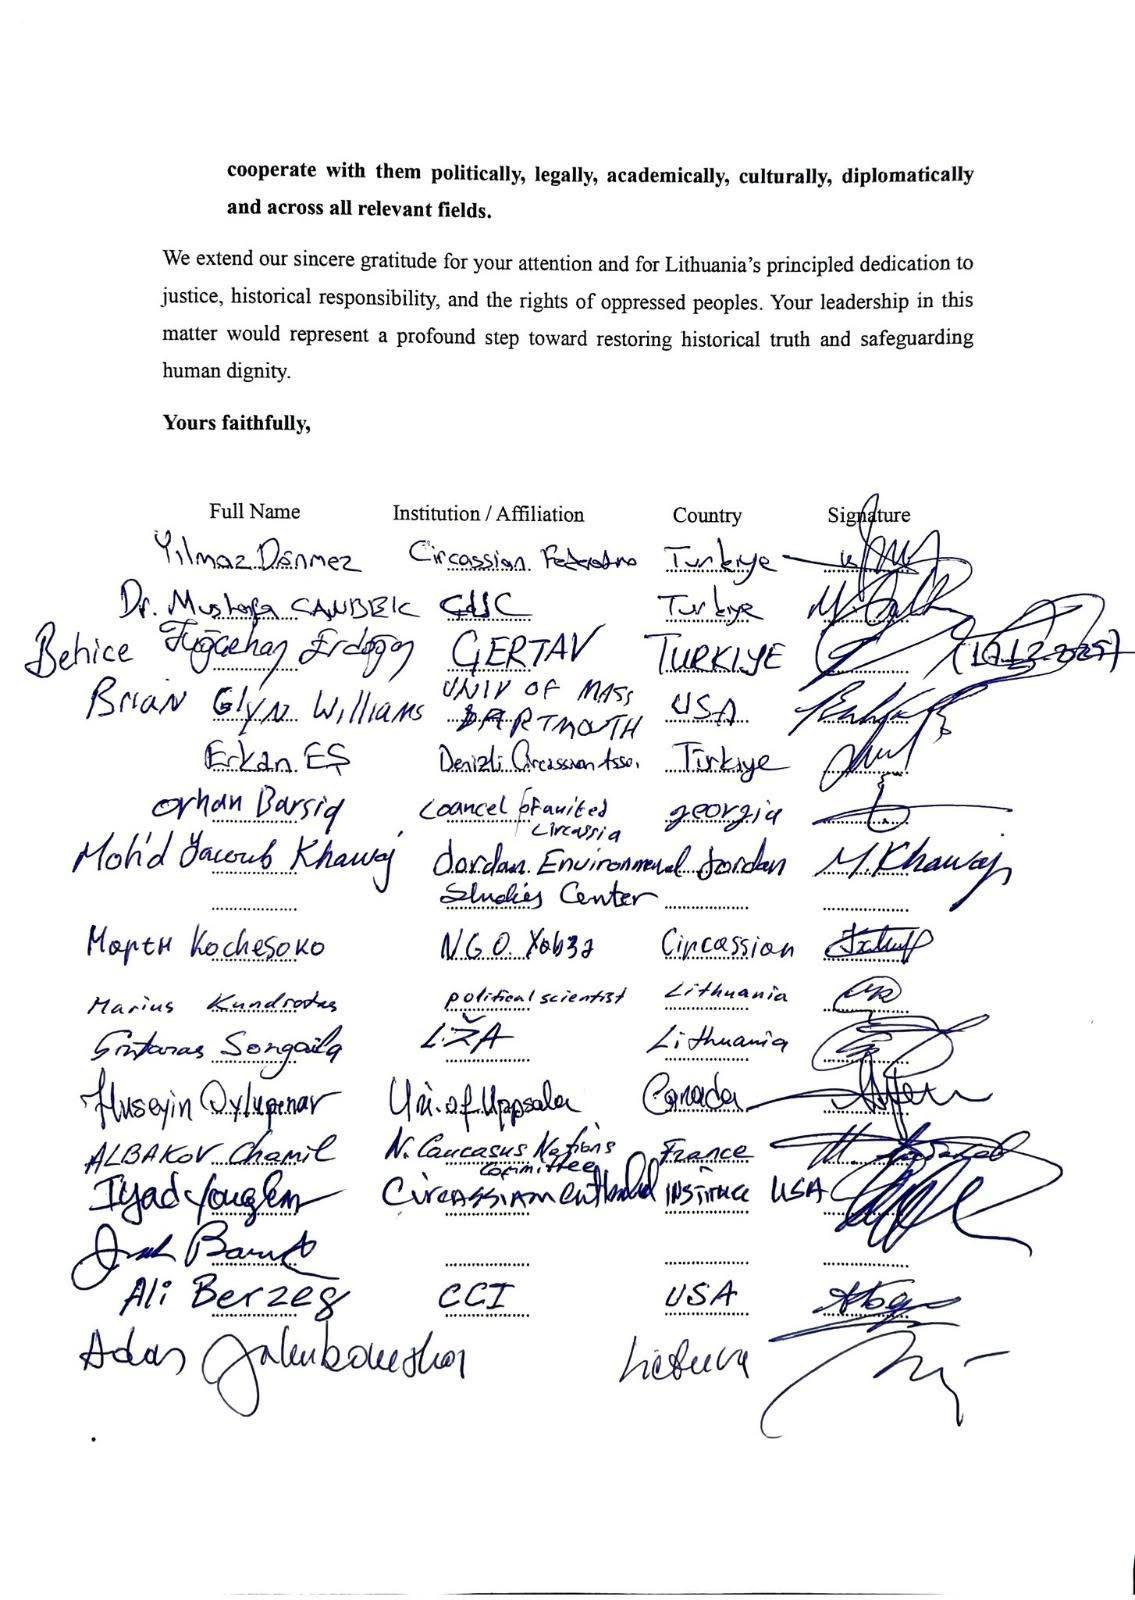 cooperate with them politically, legally, academically, culturally, diplomatically
and across all relevant fields.
We extend our sincere gratitude for your attention and for Lithuania's principled dedication to
justice, historical responsibility, and the rights of oppressed peoples. Your leadership in this
matter would represent a profound step toward restoring historical truth and safeguarding
human dignity.
Yours faithfully,
Full Name Institution / Affiliation Country Signature
Yılmaz Dönmez Circassian Türkiye
Dr. Mustafa CANBEK Türkiye
Behice Erdoğan GERTAV TURKIYE
Brian Glyn Williams UNIV OF MASS USA
DARTMOUTH
Erkan EŞ Denizli Circassian Asso. Türkiye
orhan Barsiq Loancel of united georgia
circassia
Moh'd Yacoub Khawaj Jordan Environmental Jordan M. Khawaj
Studies Center
Kochesoko N.G.O. Circassian
Marius Kundrotas political scientist Lithuania
Gintaras Songaila LŽA Lithuania
Huseyin Oylupinar Uni. of Uppsala Canada
ALBAKOV Chamil N. Caucasus Nations France
Committee
Iyad Youghar USA
Ali Berzeg CCI USA
Lietuva